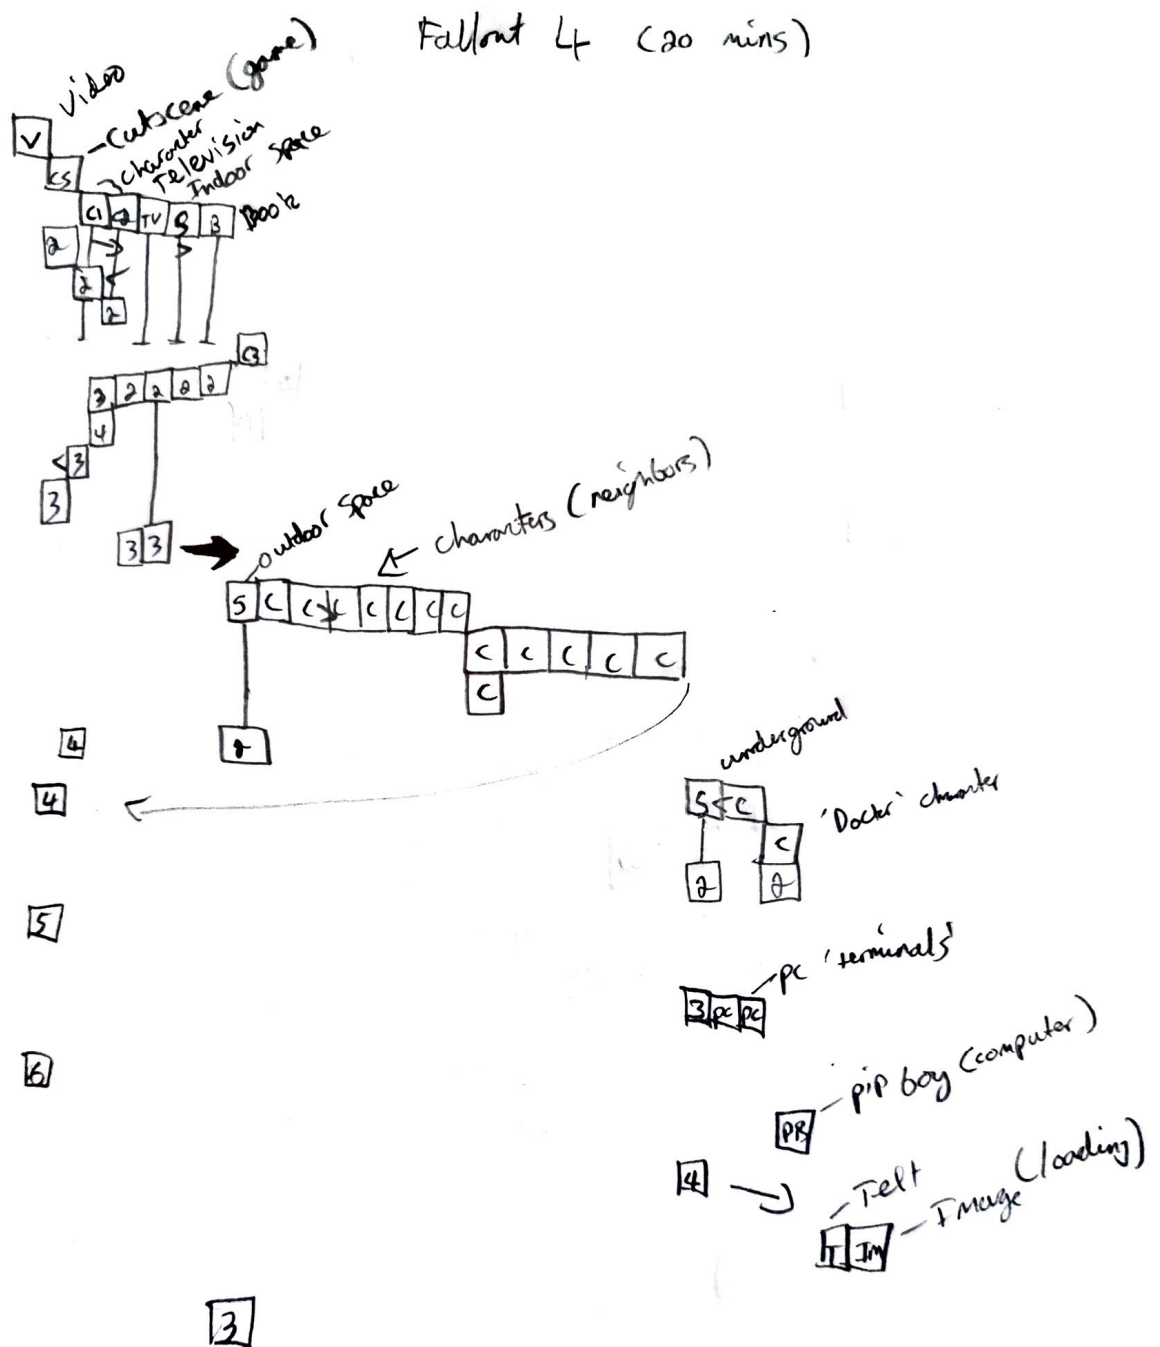 Fallout 4 (20 mins)
Video
V
Cutscene (game)
CS
Character
Television
Indoor Space
C1 TV S B Book
2
2
2
C3
3 2 2 2 2
4
3
3
3 3
Outdoor Space
characters (neighbors)
S C C C C C C C
C C C C C
C
4
2
4
underground
S C
'Docter' character
C
2 2
5
pc 'terminals'
3 PC PC
6
pip boy (computer)
PB
4
Text
Image (loading)
T Im
3